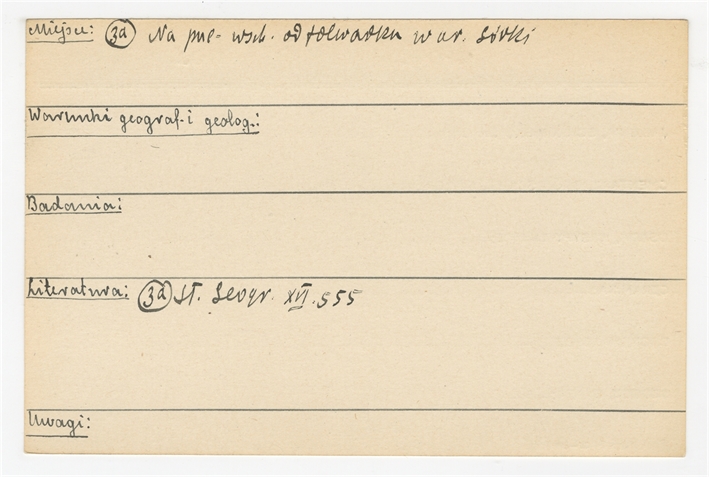 Miejsce: 3a Na pne- wsch. od folwarku w ur. Siwki
Warunki geograf. i geolog.:
Badania:
Literatura: 3a St. Geogr. XVI. 555
Uwagi: